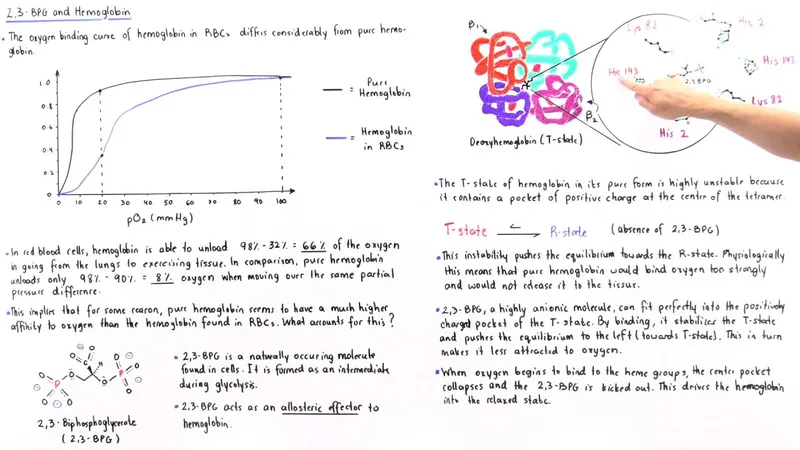 2,3-BPG and Hemoglobin
• The oxygen binding curve of hemoglobin in RBCs differs considerably from pure hemo-
globin.
1.0
0.8
0.6
0.4
0.2
0
0 10 20 30 40 50 60 70 80 90 100
pO2 (mmHg)
= Pure
Hemoglobin
= Hemoglobin
in RBCs
• In red blood cells, hemoglobin is able to unload 98% - 32% = 66% of the oxygen
in going from the lungs to exercising tissue. In comparison, pure hemoglobin
unloads only 98% - 90% = 8% oxygen when moving over the same partial
pressure difference.
• This implies that for some reason, pure hemoglobin seems to have a much higher
affinity to oxygen than the hemoglobin found in RBCs. What accounts for this?
2,3-Biphosphoglycerate
(2,3-BPG)
• 2,3-BPG is a naturally occurring molecule
found in cells. It is formed as an intermediate
during glycolysis.
• 2,3-BPG acts as an allosteric effector to
hemoglobin.
β1
β2
Deoxyhemoglobin (T-state)
Lys 82
His 2
His 143
His 143
2,3-BPG
Lys 82
His 2
• The T-state of hemoglobin in its pure form is highly unstable because
it contains a pocket of positive charge at the center of the tetramer.
T-state R-state (absence of 2,3-BPG)
• This instability pushes the equilibrium towards the R-state. Physiologically
this means that pure hemoglobin would bind oxygen too strongly
and would not release it to the tissue.
• 2,3-BPG, a highly anionic molecule, can fit perfectly into the positively
charged pocket of the T-state. By binding, it stabilizes the T-state
and pushes the equilibrium to the left (towards T-state). This in turn
makes it less attracted to oxygen.
• When oxygen begins to bind to the heme groups, the center pocket
collapses and the 2,3-BPG is kicked out. This drives the hemoglobin
into the relaxed state.